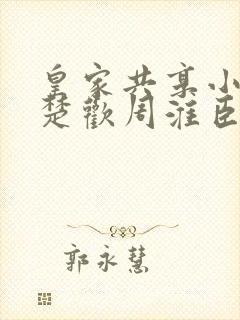 皇家共享小
楚歡周淮臣
郭永慧